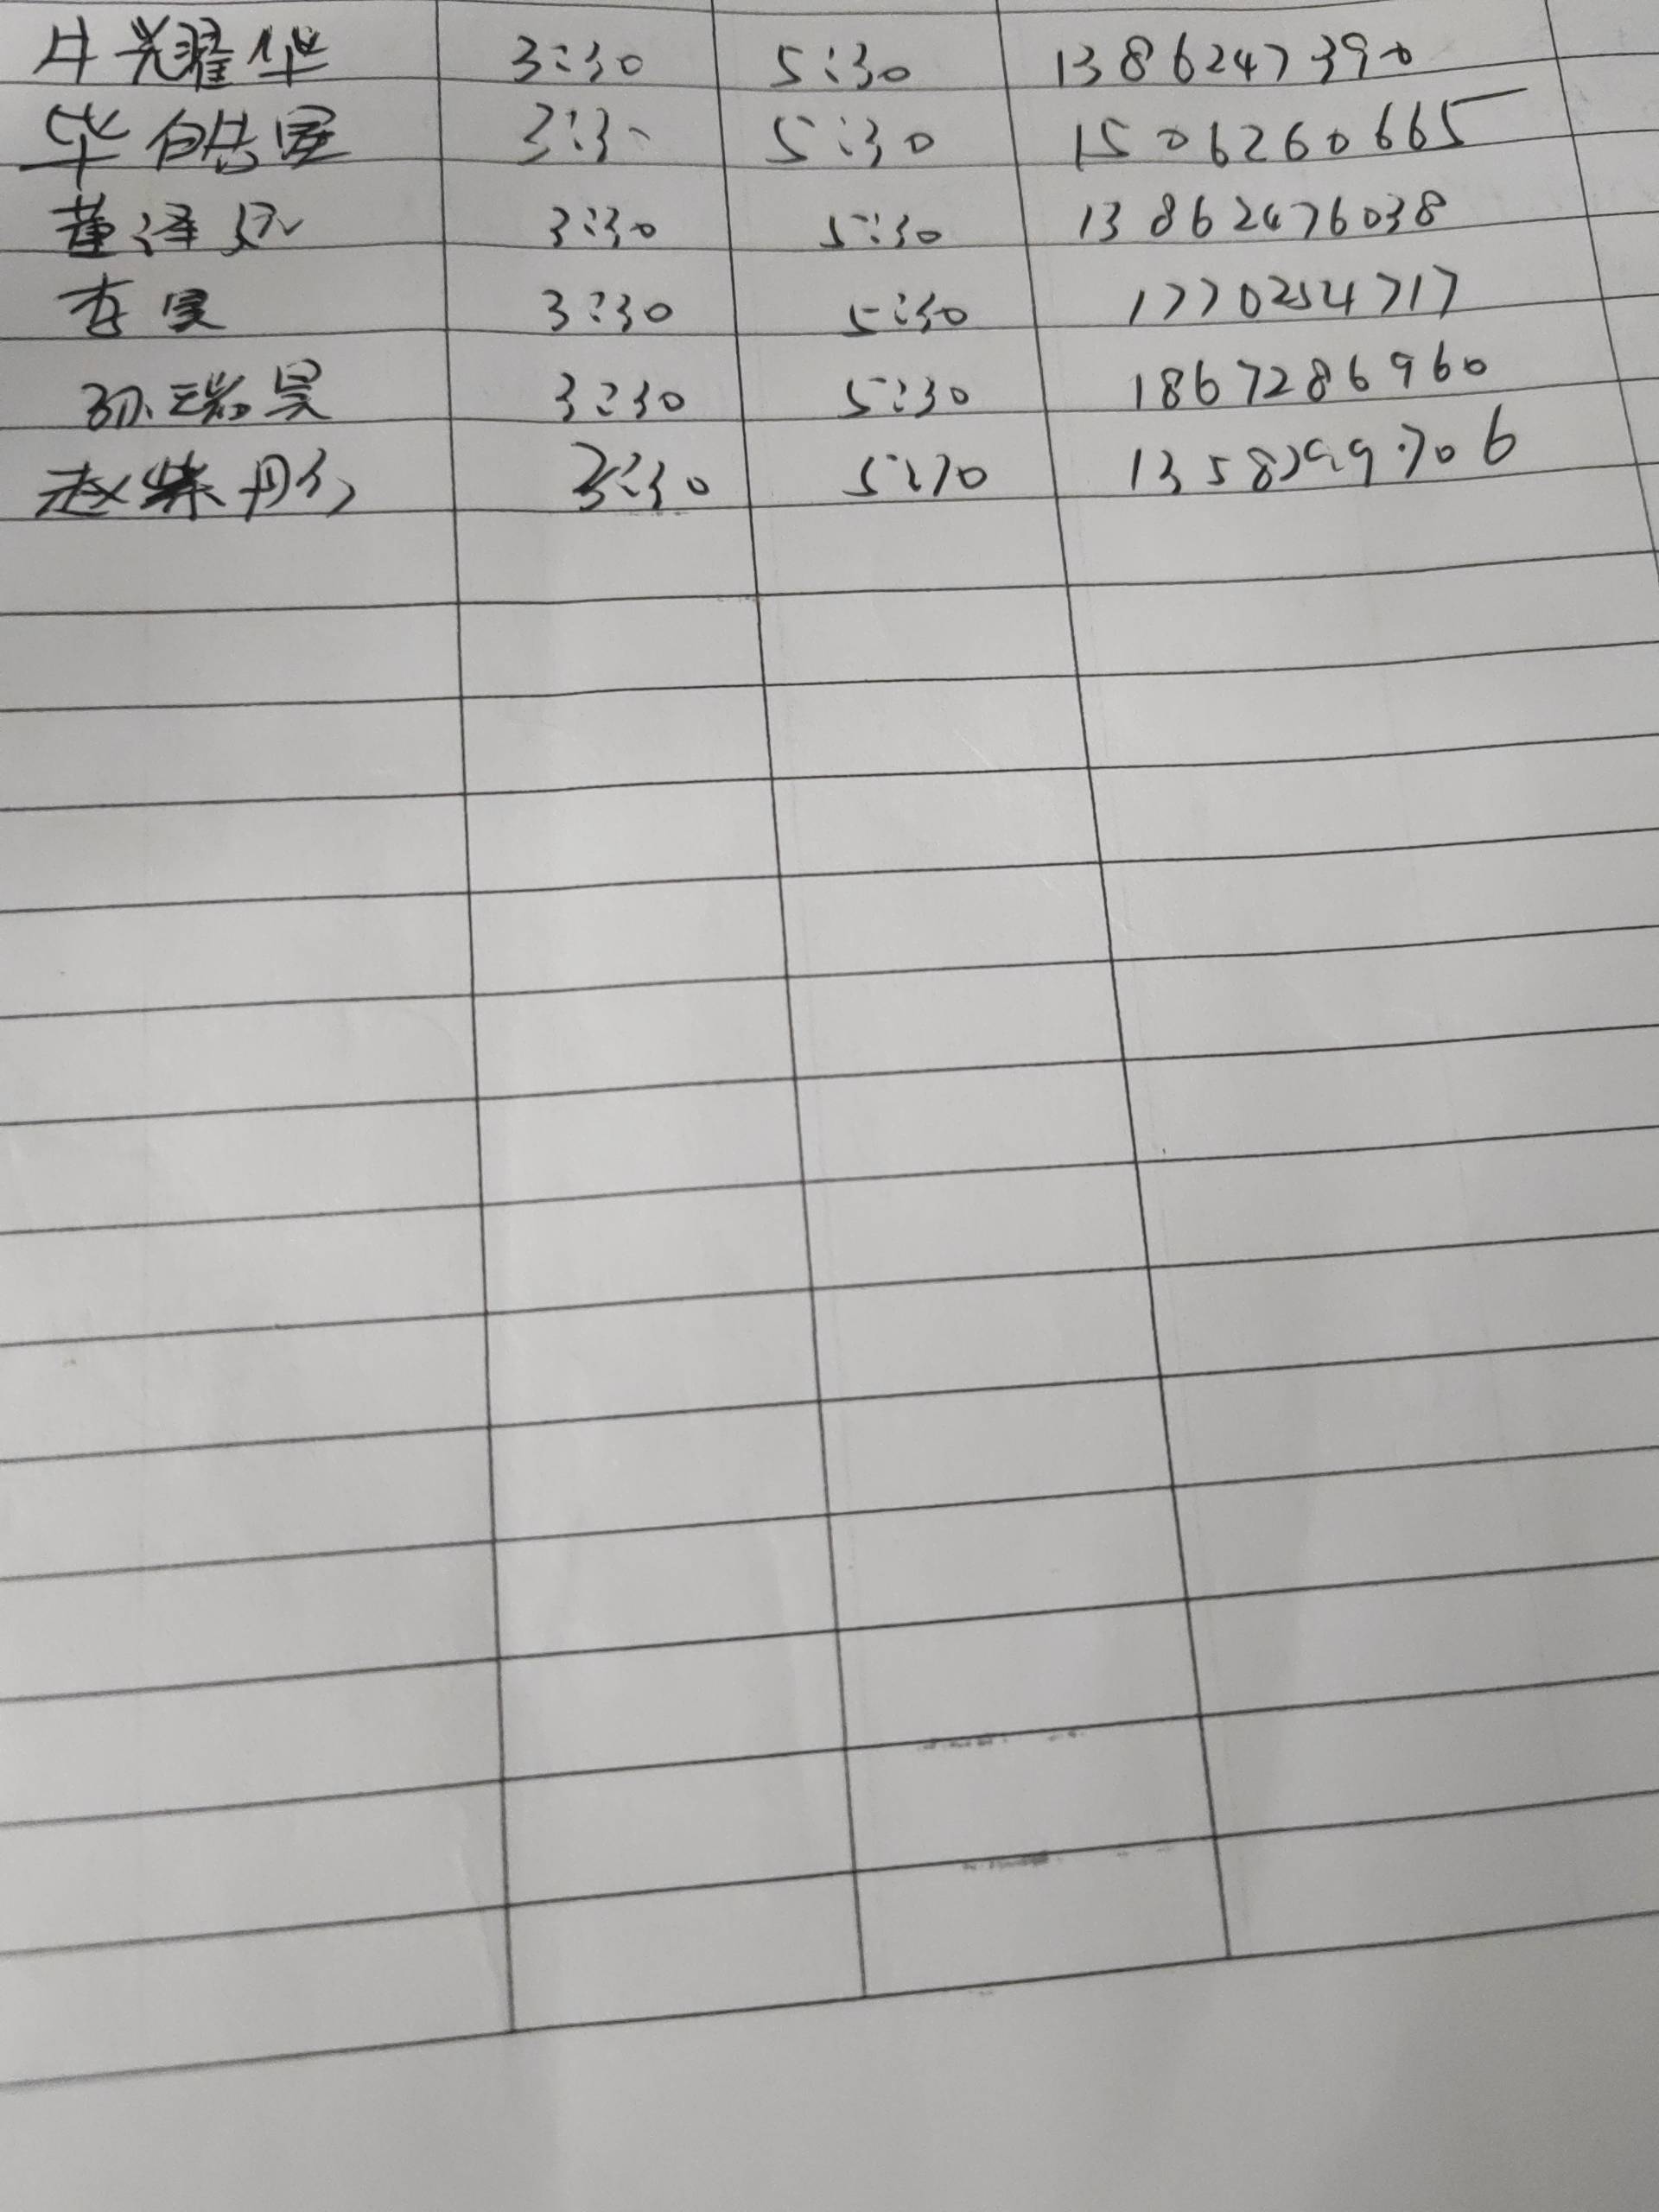 牛耀华 3:30 5:30 13862473990
华皓宸 3:30 5:30 1506260665
董泽远 3:30 5:30 13862476038
李昊 3:30 5:30 1770254717
孙瑞昊 3:30 5:30 1867286960
赵紫彤 3:30 5:30